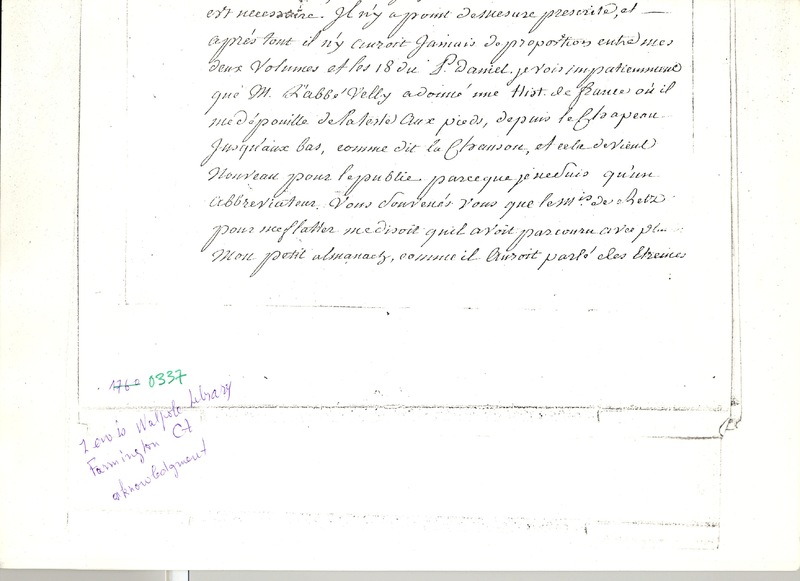 est necessaire. Il n'y a point de mesure prescrite, et —
aprés tout il n'y auroit Jamais de proportion entre mes
deux Volumes et les 18 du P. Daniel. je vois impatiemment
que M. L'abbé Velly a donné une Hist. de france où il
me dépouille de la teste aux pieds, depuis le Chapeau
Jusqu'aux bas, comme dit la Chanson, et cela devient
Nouveau pour le public parce que je ne suis qu'un
abbreviateur. Vous souvenés vous que le Mis de
pour me flatter me disoit qu'il avoit parcouru avec
Mon petit almanach, comme il auroit parlé des Etrennes
1760 0337
Lewis Walpole Library
Farmington Ct
aknowledgment